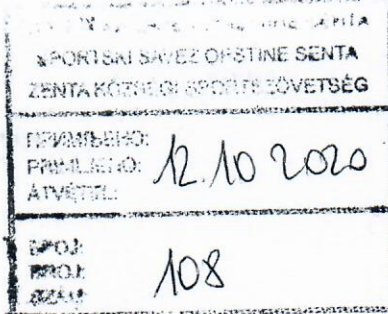 SPORTSKI SAVEZ OPŠTINE SENTA
ZENTA KÖZSÉGI SPORTSZÖVETSÉG
ПРИМЉЕНО:
PRIMLJENO: 12.10 2020
ÁTVÉTEL:
БРОЈ:
BROJ: 108
SZÁM: